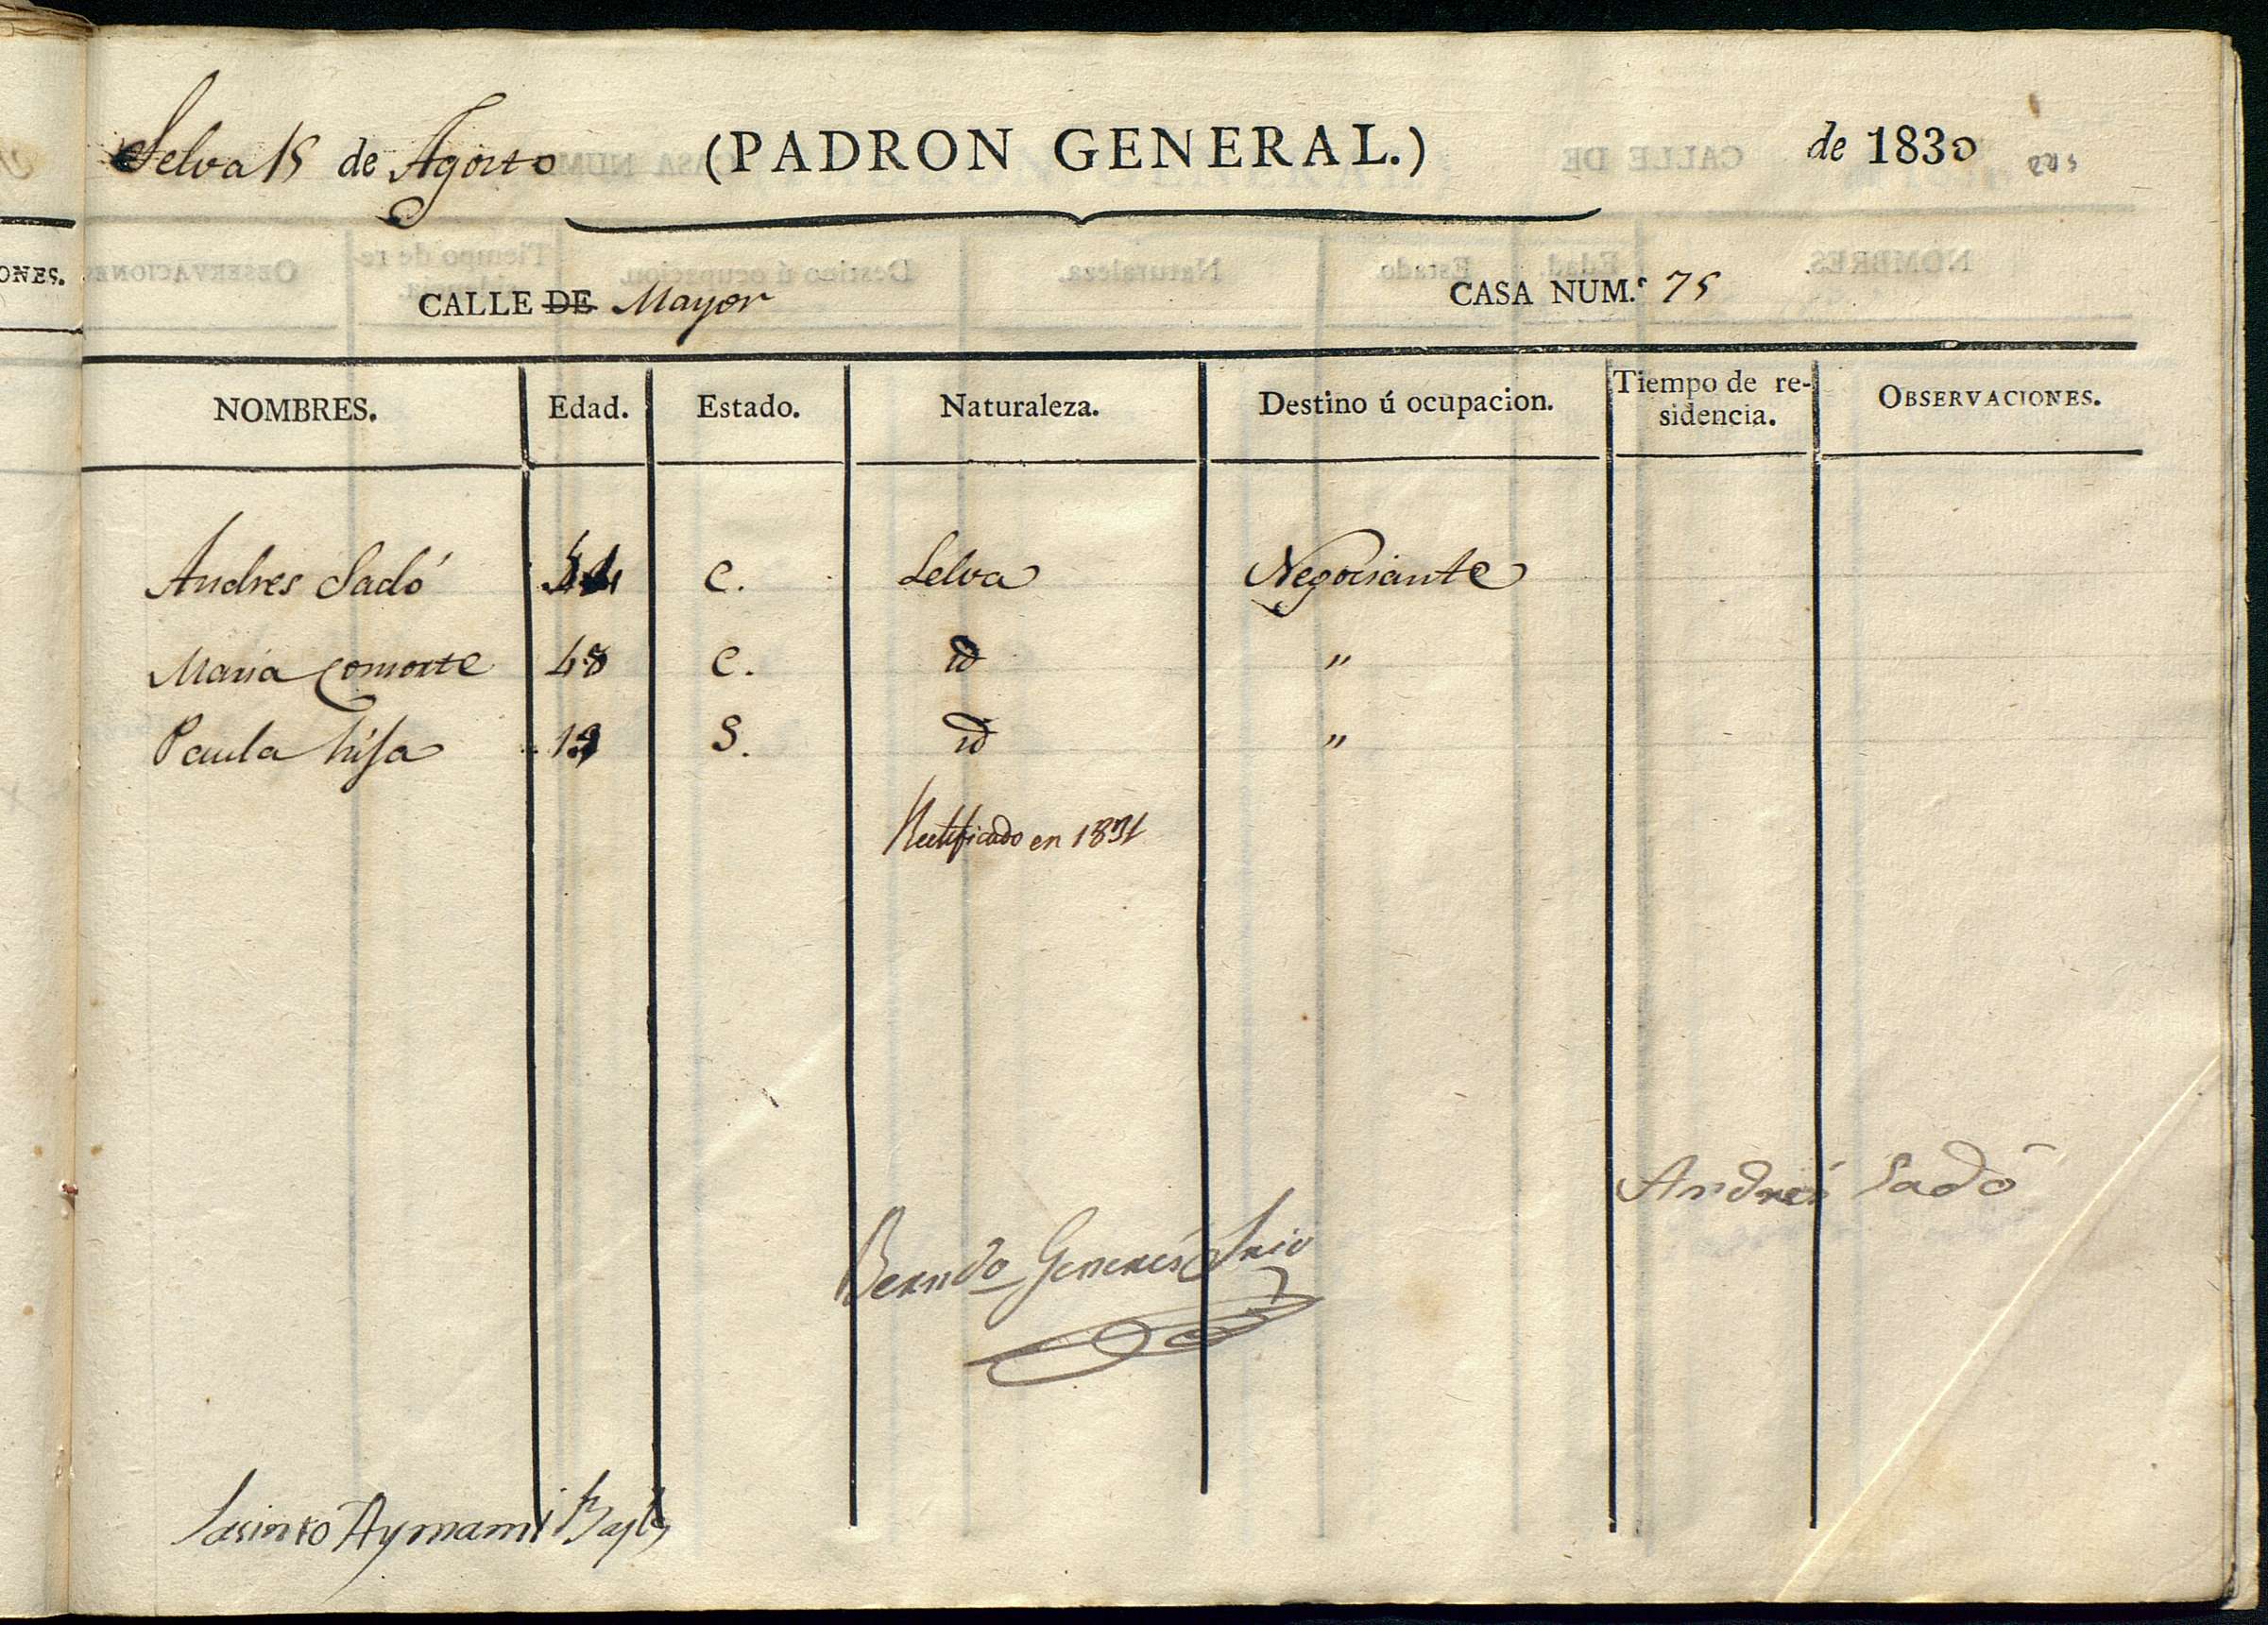 Selva 15 de Agosto (PADRON GENERAL.) de 1830
CALLE DE Mayor CASA NUM.º 75
NOMBRES. Edad. Estado. Naturaleza. Destino ú ocupacion. Tiempo de residencia. OBSERVACIONES.
Andres Sadó C. Selva Negociante
Maria Consorte 48 C. id "
Paula hija S. id "
Rectificado en 1831
Andres Sadó
Berndo Generés Srio
Jasinto Aymami Bayle